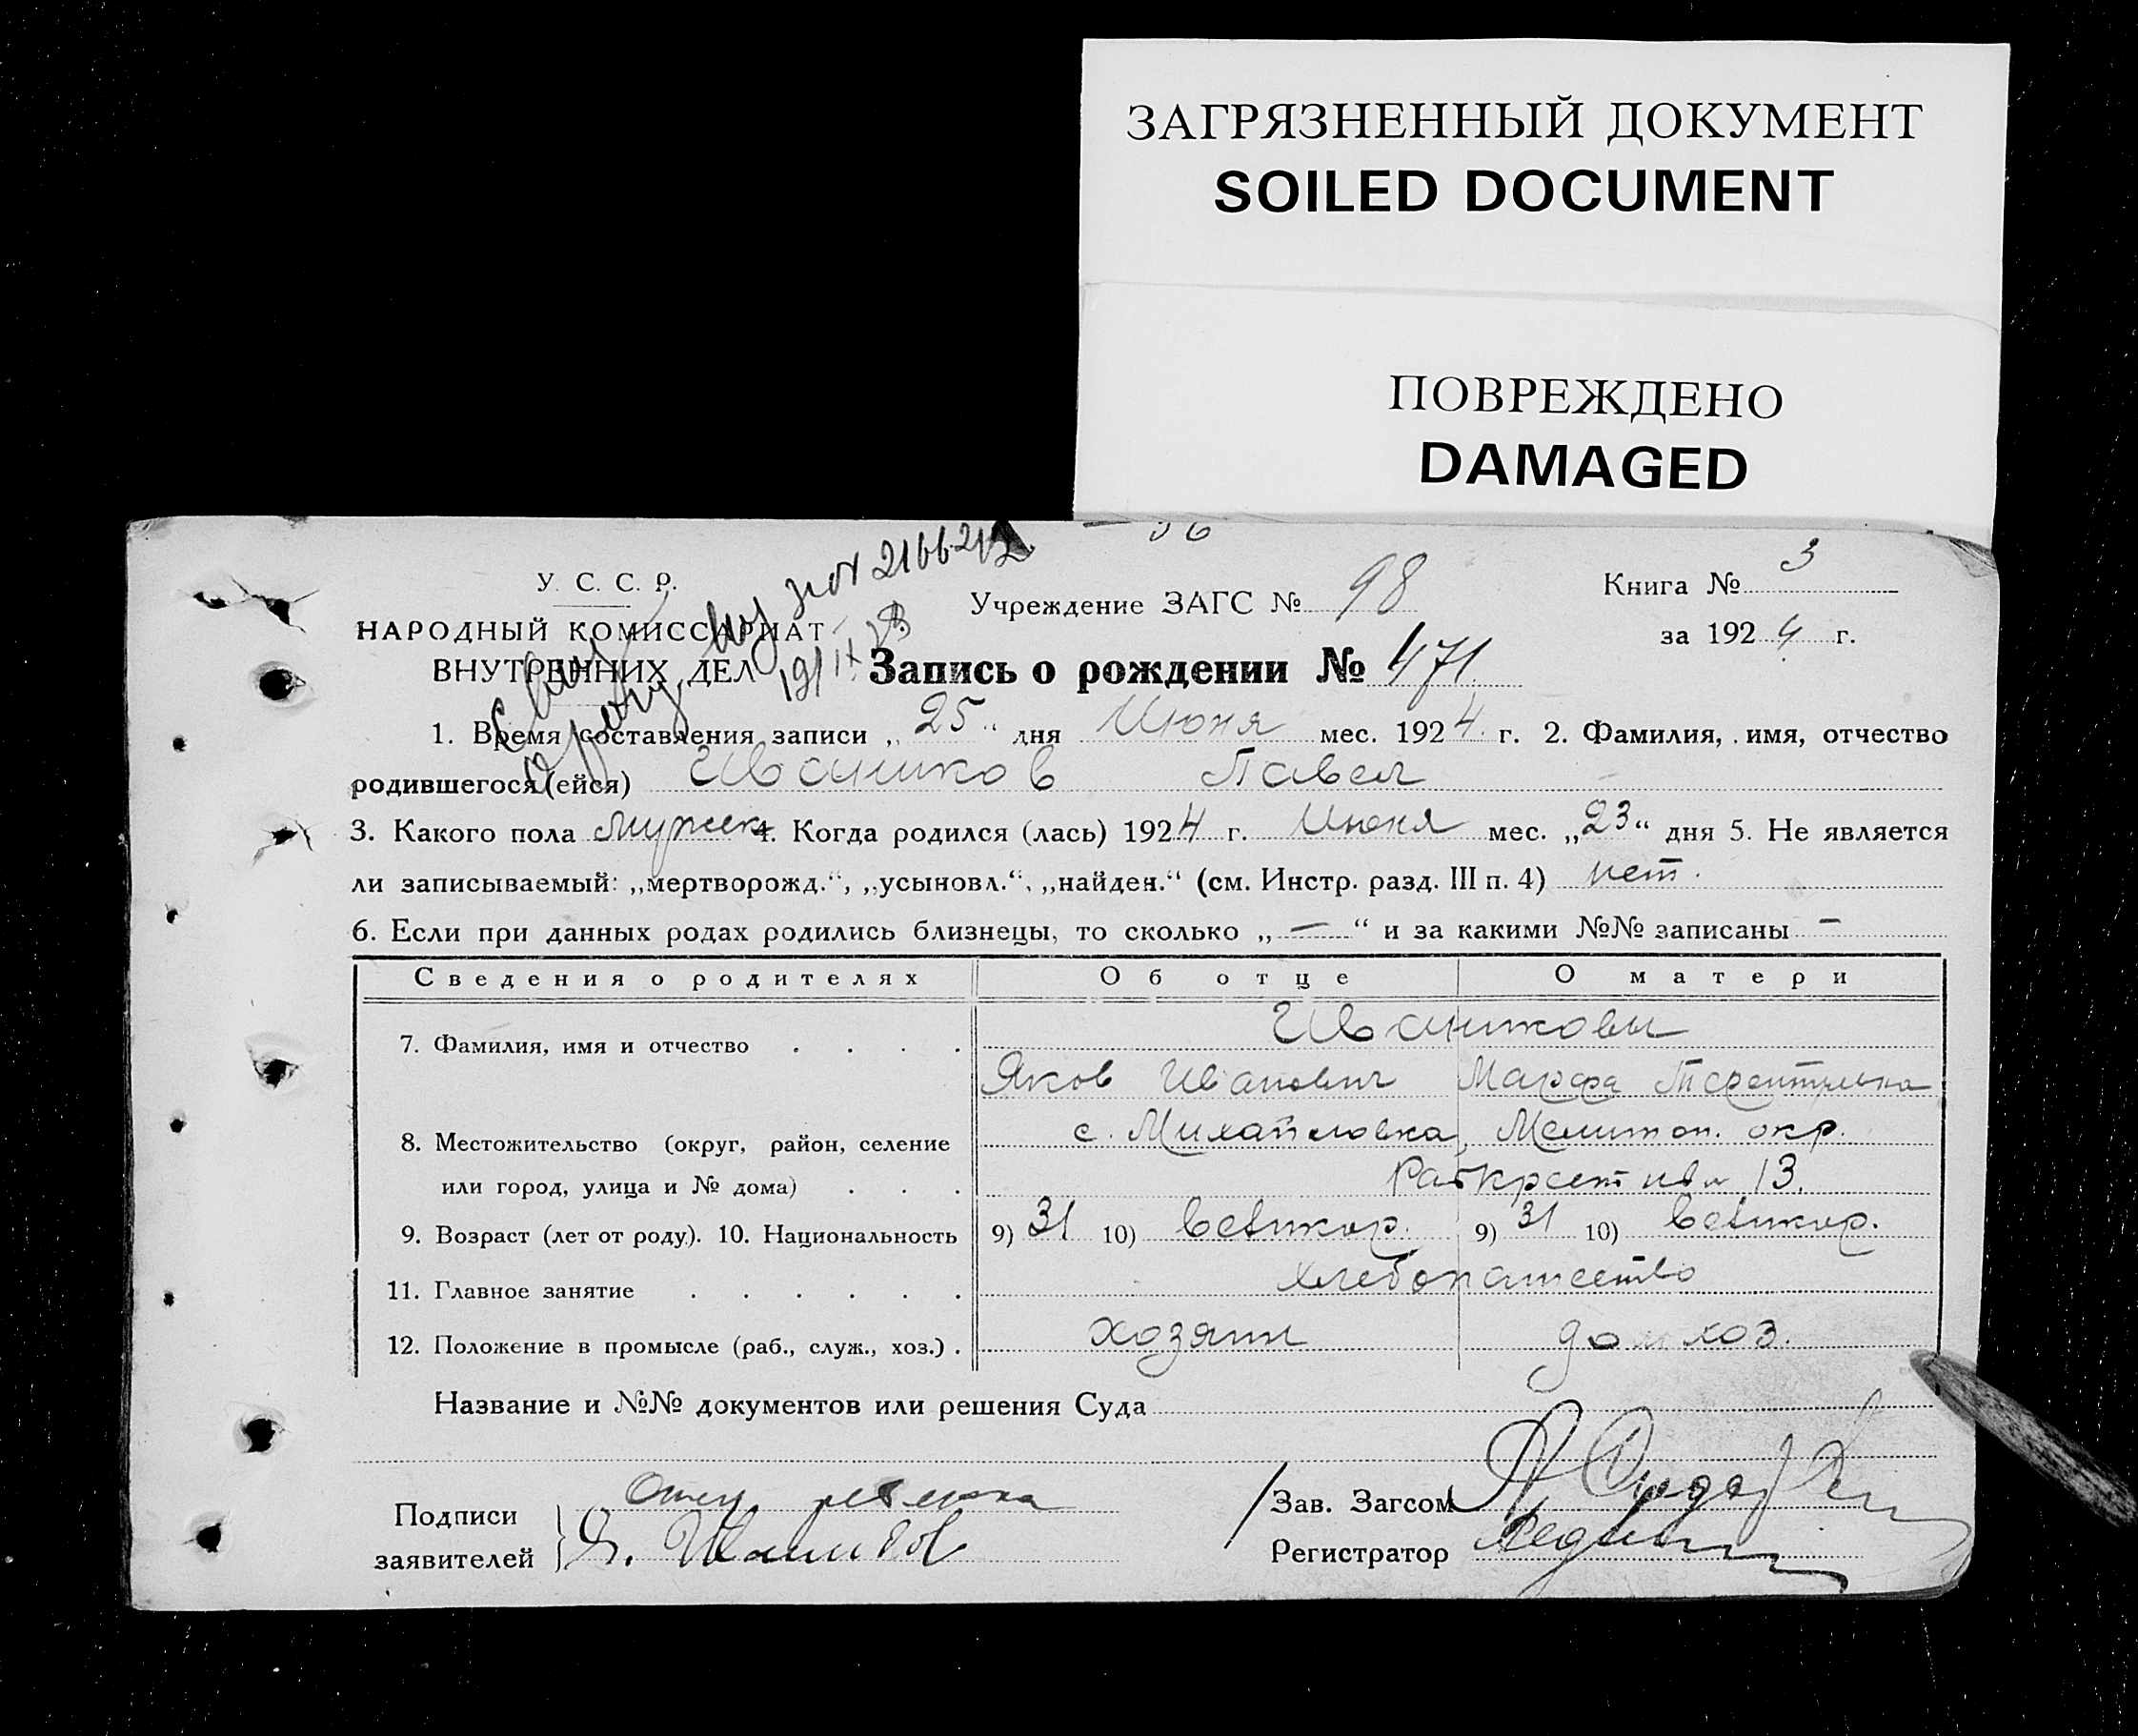 ЗАГРЯЗНЕННЫЙ ДОКУМЕНТ
SOILED DOCUMENT
ПОВРЕЖДЕНО
DAMAGED
У. С. С. Р.
НАРОДНЫЙ КОМИССАРИАТ
ВНУТРЕННИХ ДЕЛ
Учреждение ЗАГС № 98
Книга № 3
за 1924 г.
Запись о рождении № 471
1. Время составления записи „25“ дня Июня мес. 1924 г. 2. Фамилия, имя, отчество
родившегося (ейся) Иванников Павел
3. Какого пола мужск 4. Когда родился (лась) 1924 г. Июня мес. „23“ дня 5. Не является
ли записываемый: „мертворожд.“, „усыновл.“, „найден.“ (см. Инстр. разд. III п. 4) нет.
6. Если при данных родах родились близнецы, то сколько „—“ и за какими №№ записаны —
Сведения о родителях Об отце О матери
7. Фамилия, имя и отчество . . . . Иванниковы
Яков Иванович Марфа Терентьевна
8. Местожительство (округ, район, селение с. Михайловка, Мелитоп. окр.
или город, улица и № дома) . . . 13.
9. Возраст (лет от роду). 10. Национальность 9) 31 10) Великор. 9) 31 10) Великор.
11. Главное занятие . . . . . . хлебопашество
12. Положение в промысле (раб., служ., хоз.) . хозяин дом. хоз.
Название и №№ документов или решения Суда
Подписи Отец ребенка
заявителей Я. Иванников
Зав. Загсом
Регистратор